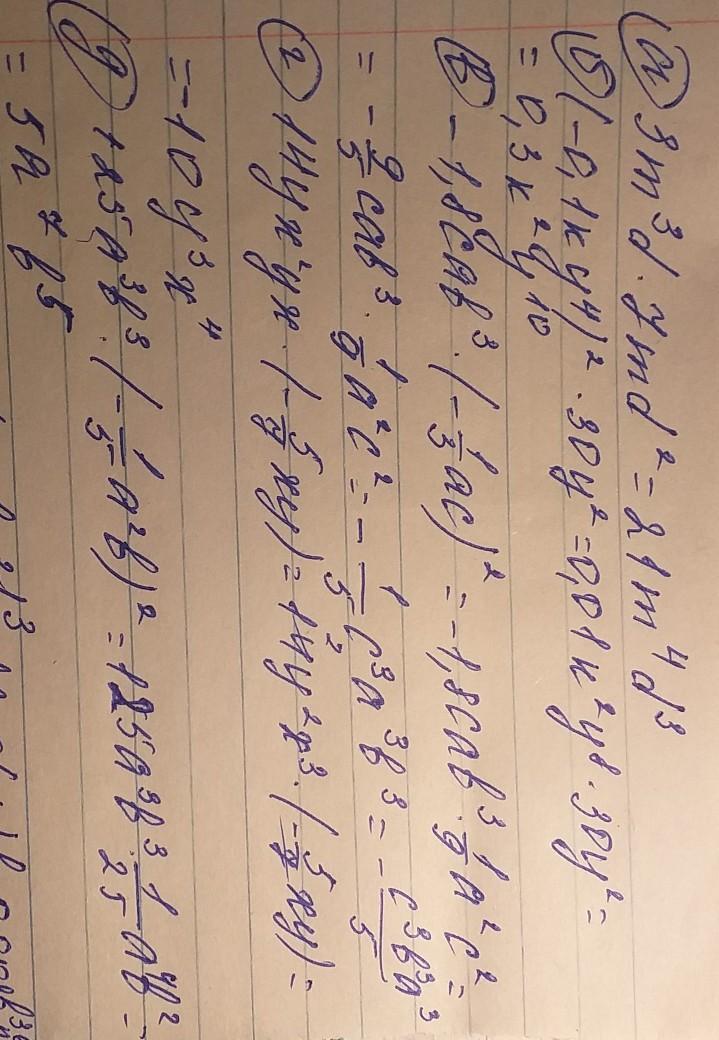 а) 3m³d · 7md² = 21m⁴d³
б) (-0,1xy⁴)² · 30y² = 0,01x²y⁸ · 30y² =
= 0,3x²y¹⁰
в) -1,8cab³ · (-1/3 ac)² = -1,8cab³ · 1/9 a²c² =
= -9/5 cab³ · 1/9 a²c² = -1/5 c³a³b³ = - c³b³a³/5
г) 14yx²yx · (-5/7 xy) = 14y²x³ · (-5/7 xy) =
= -10y³x⁴
д) 125a³b³ · (-1/5 a²b)² = 125a³b³ · 1/25 a⁴b² =
= 5a⁷b⁵